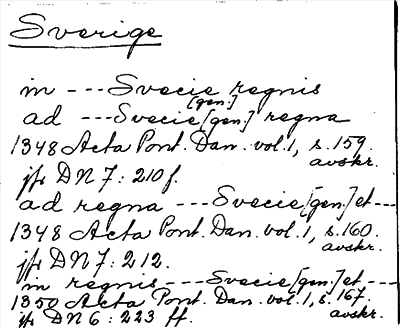 Sverige
in --- Svecie regnis
[gen.]
ad --- Svecie [gen.] regna
1348 Acta Pont. Dan. vol. 1, s. 159.
avskr.
jfr DN 7: 210 f.
ad regna --- Svecie [gen.] et ---
1348 Acta Pont. Dan. vol. 1, s. 160.
avskr.
jfr DN 7: 212.
in regnis --- Svecie [gen.] et ---
1350 Acta Pont. Dan. vol. 1, s. 167.
avskr.
jfr DN 6: 223 ff.